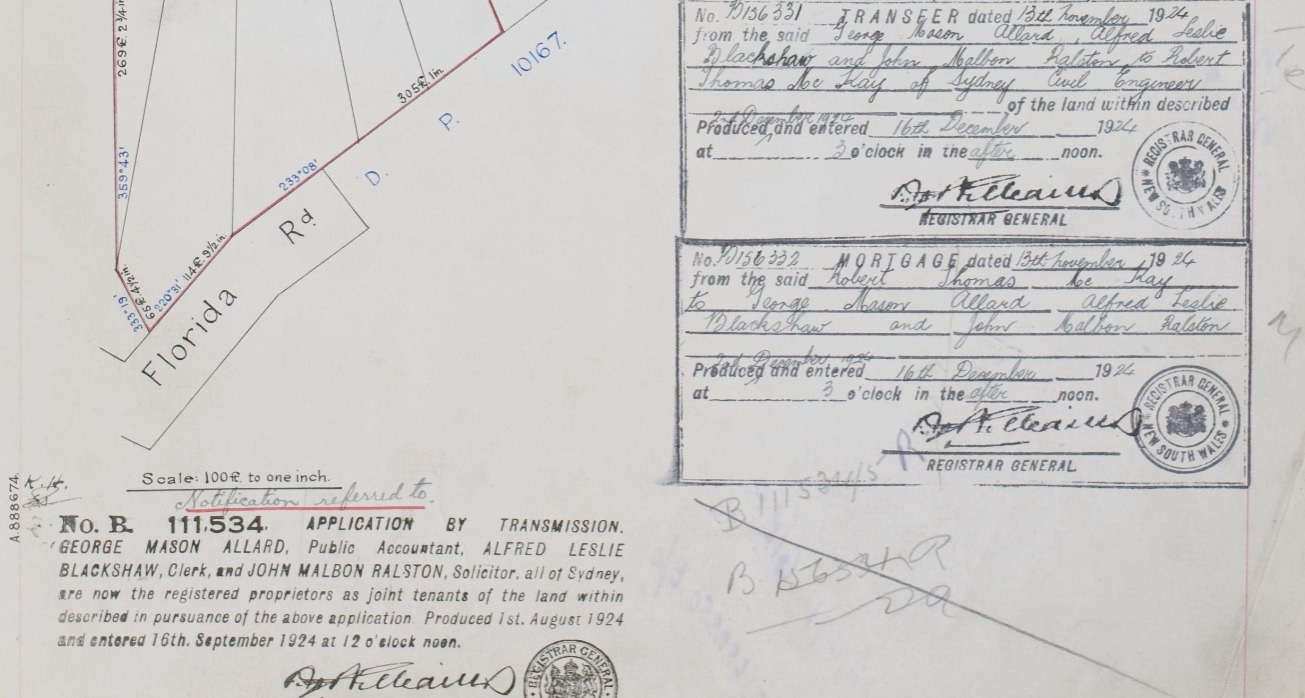 269ft. 2¾in
359°43'
333°19'
65ft. 4½in.
220°31'
114ft. 9½in.
233°08'
305ft. 1in.
D. P. 10167.
Florida Rd
Scale: 100ft. to one inch.
A.888674.
Notification referred to.
No. B. 111,534. APPLICATION BY TRANSMISSION.
GEORGE MASON ALLARD, Public Accountant, ALFRED LESLIE
BLACKSHAW, Clerk, and JOHN MALBON RALSTON, Solicitor, all of Sydney,
are now the registered proprietors as joint tenants of the land within
described in pursuance of the above application. Produced 1st. August 1924
and entered 16th. September 1924 at 12 o'clock noon.
REGISTRAR GENERAL
No. B156331 TRANSFER dated 13th November 1924
from the said George Mason Allard, Alfred Leslie
Blackshaw and John Malbon Ralston to Robert
Thomas Mc Kay of Sydney Civil Engineer
of the land within described
2nd December 1924
Produced and entered 16th December 1924
at 3 o'clock in the after noon.
REGISTRAR GENERAL
REGISTRAR GENERAL NEW SOUTH WALES
No. B156332 MORTGAGE dated 13th November 1924
from the said Robert Thomas Mc Kay
to George Mason Allard Alfred Leslie
Blackshaw and John Malbon Ralston
2nd December 1924
Produced and entered 16th December 1924
at 3 o'clock in the after noon.
REGISTRAR GENERAL
REGISTRAR GENERAL NEW SOUTH WALES
B 111534/5 R